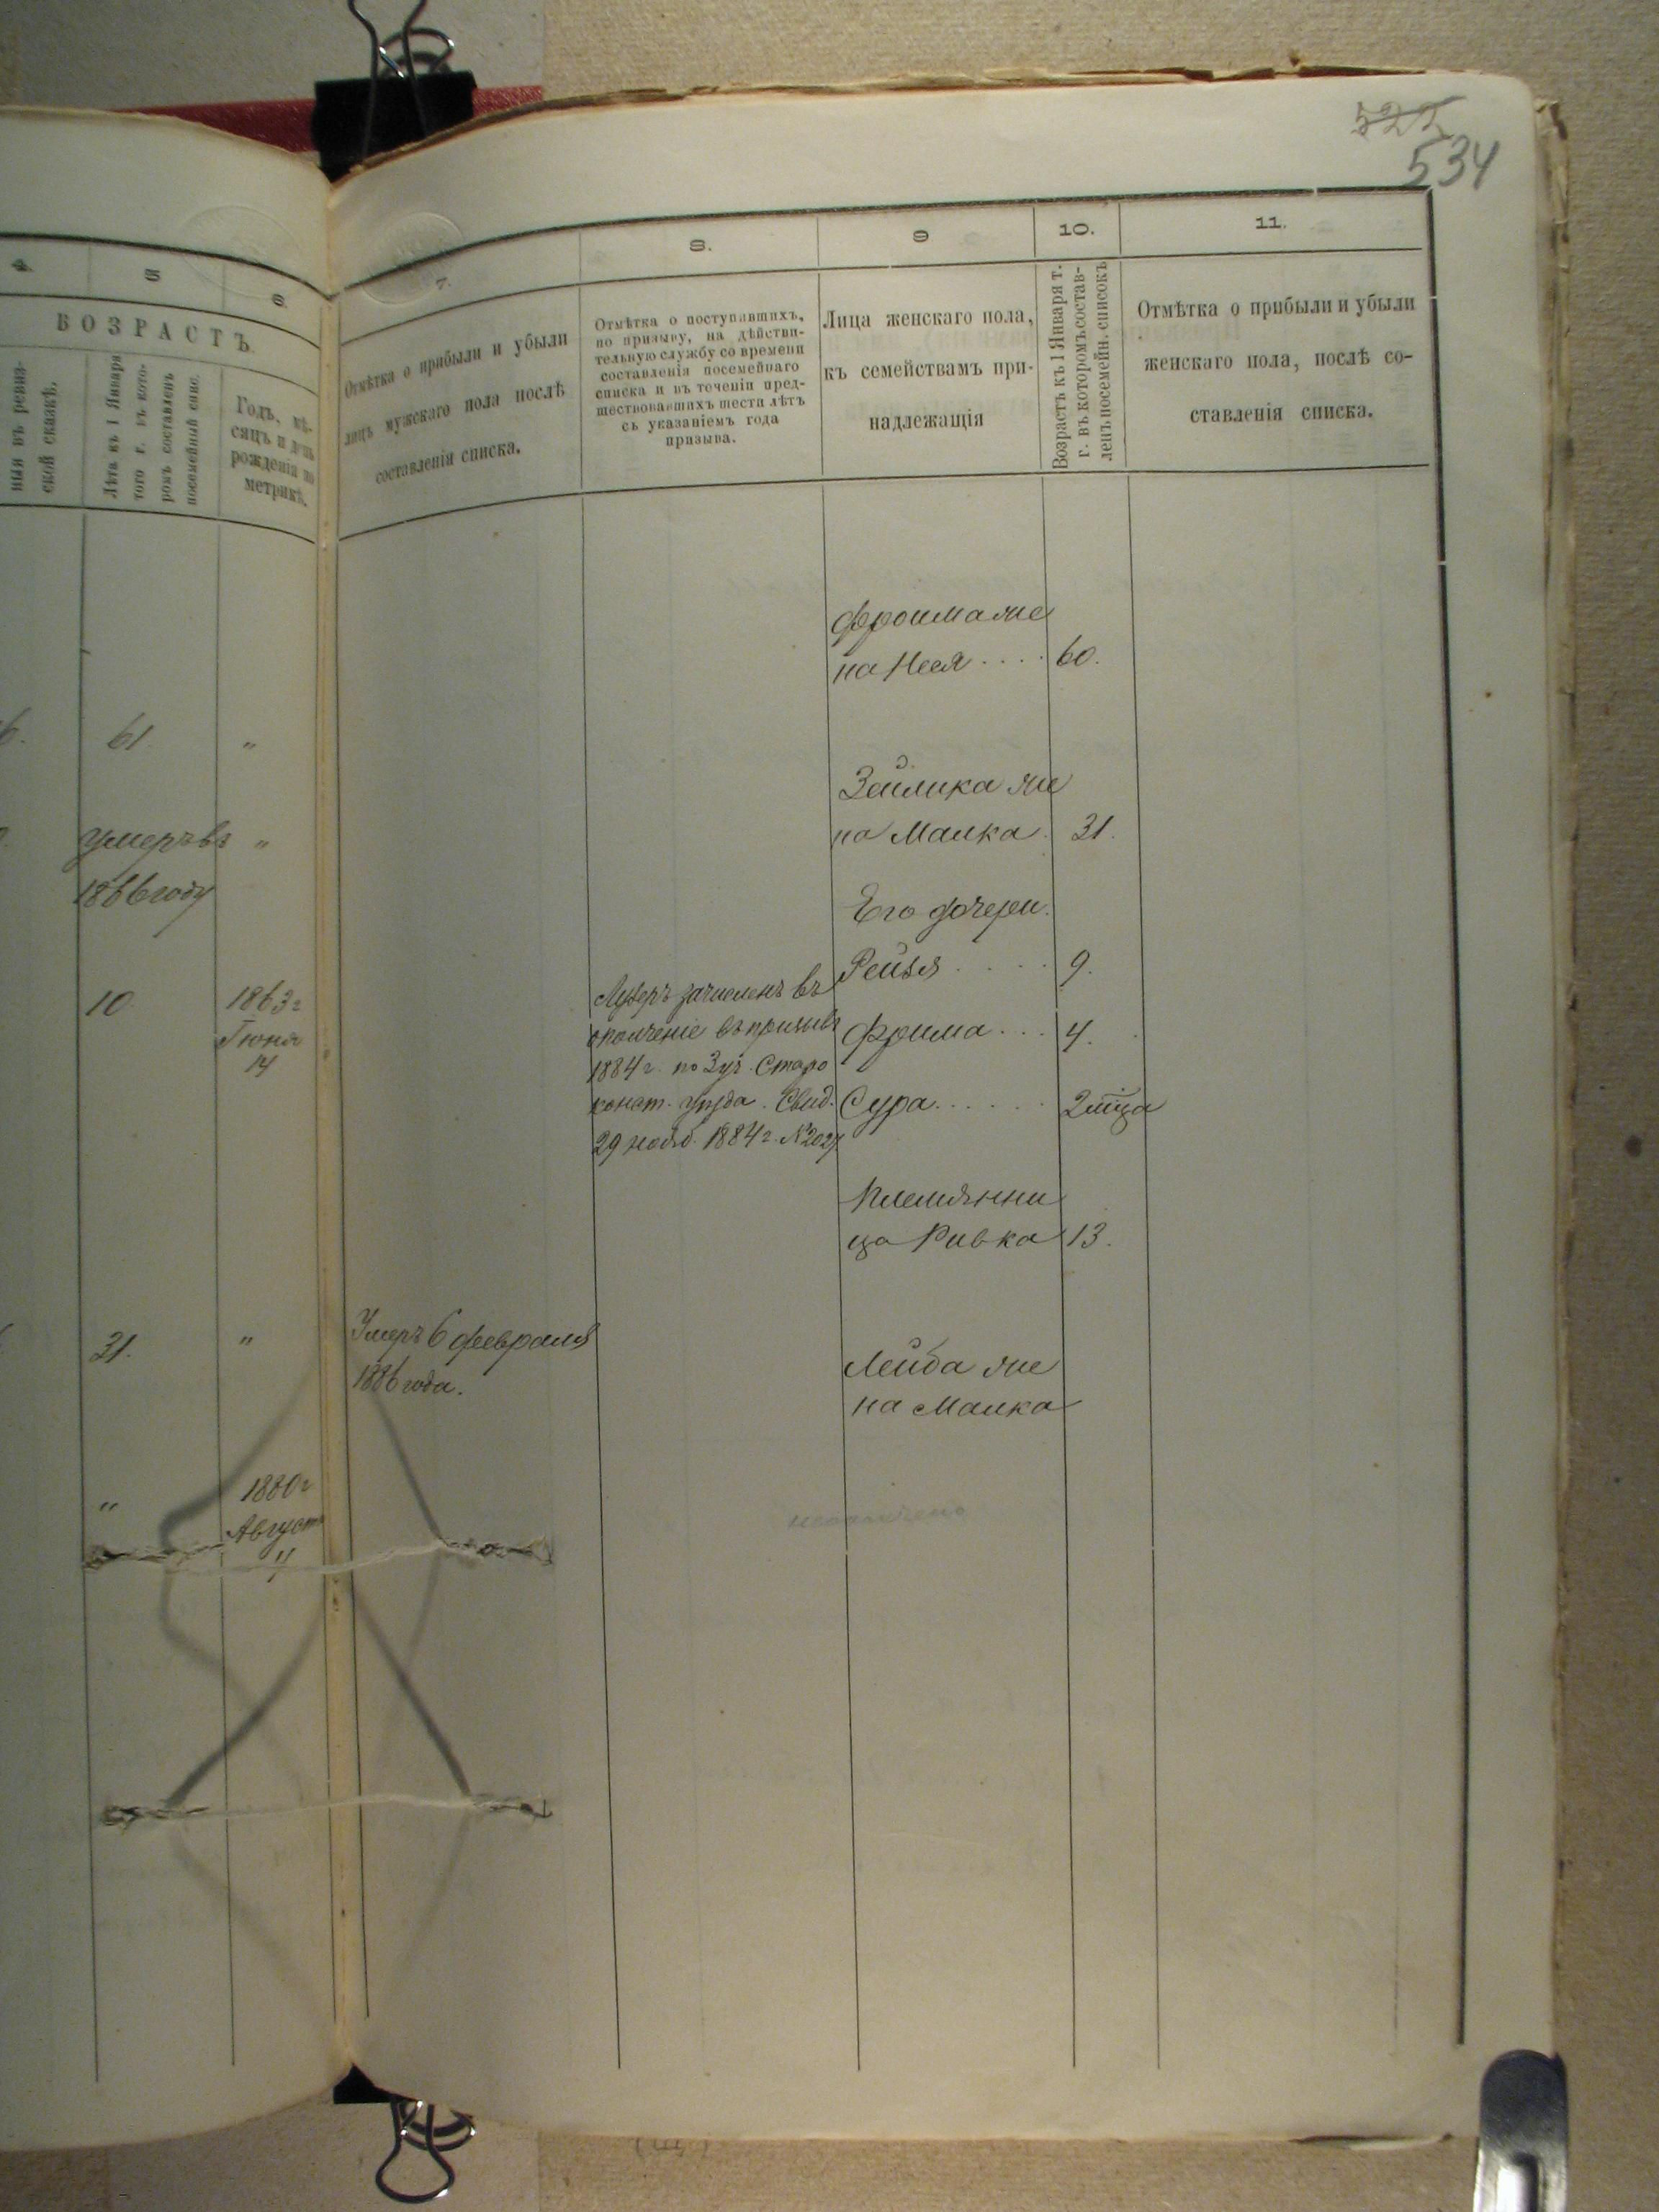 522
534
4.
5
6.
ВОЗРАСТЪ.
ныя въ ревиз-
ской сказкѣ.
Лѣта къ 1 Января
того г. въ кото-
ромъ составленъ
посемейный спис.
Годъ, мѣ-
сяцъ и день
рожденія по
метрикѣ.
7.
Отмѣтка о прибыли и убыли
лицъ мужскаго пола послѣ
составленія списка.
8.
Отмѣтка о поступавшихъ,
по призыву, на дѣйстви-
тельную службу со времени
составленія посемейнаго
списка и въ теченіи пред-
шествовавшихъ шести лѣтъ
съ указаніемъ года
призыва.
9
Лица женскаго пола,
къ семействамъ при-
надлежащія
10.
Возрастъ къ 1 Января т.
г. въ которомъ состав-
ленъ посемейн. списокъ
11.
Отмѣтка о прибыли и убыли
женскаго пола, послѣ со-
ставленія списка.
Фроима же
на Неся .... 60.
61. "
Зейлика же
на Малка . 31.
умеръ въ "
1866 году
Его дочери.
Рейзя .... 9.
10. 1863 г
Іюня
14
Лузеръ зачисленъ въ
ополченіе въ призывъ
1884 г. по 3 уч. Старо
конст. уѣзда. Свид.
29 нояб. 1884 г. № 2027
Фрима ... 4.
Сура ..... 2 мц̃а
Племянни
ца Ривка 13.
31. "
Умеръ 6 февраля
1886 года.
Лейба же
на Малка
" 1880 г
Август
4